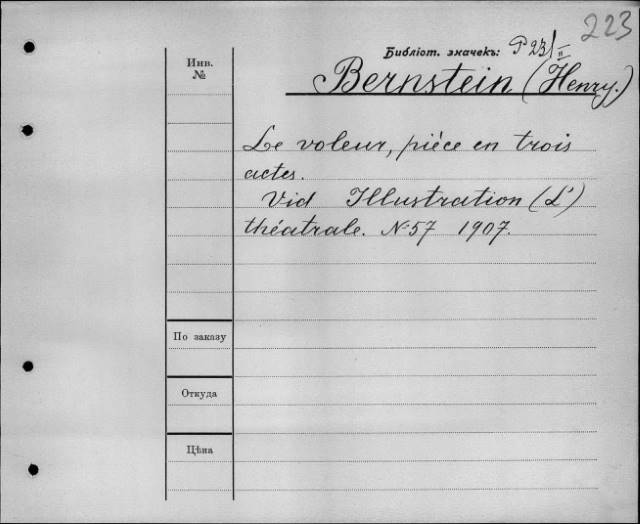 223
Библіот. значекъ: P23/II
Инв.
№
Bernstein (Henry.)
Le voleur, piéce en trois
actes.
Vid Illustration (L')
théatrale. №57 1907.
По заказу
Откуда
Цѣна